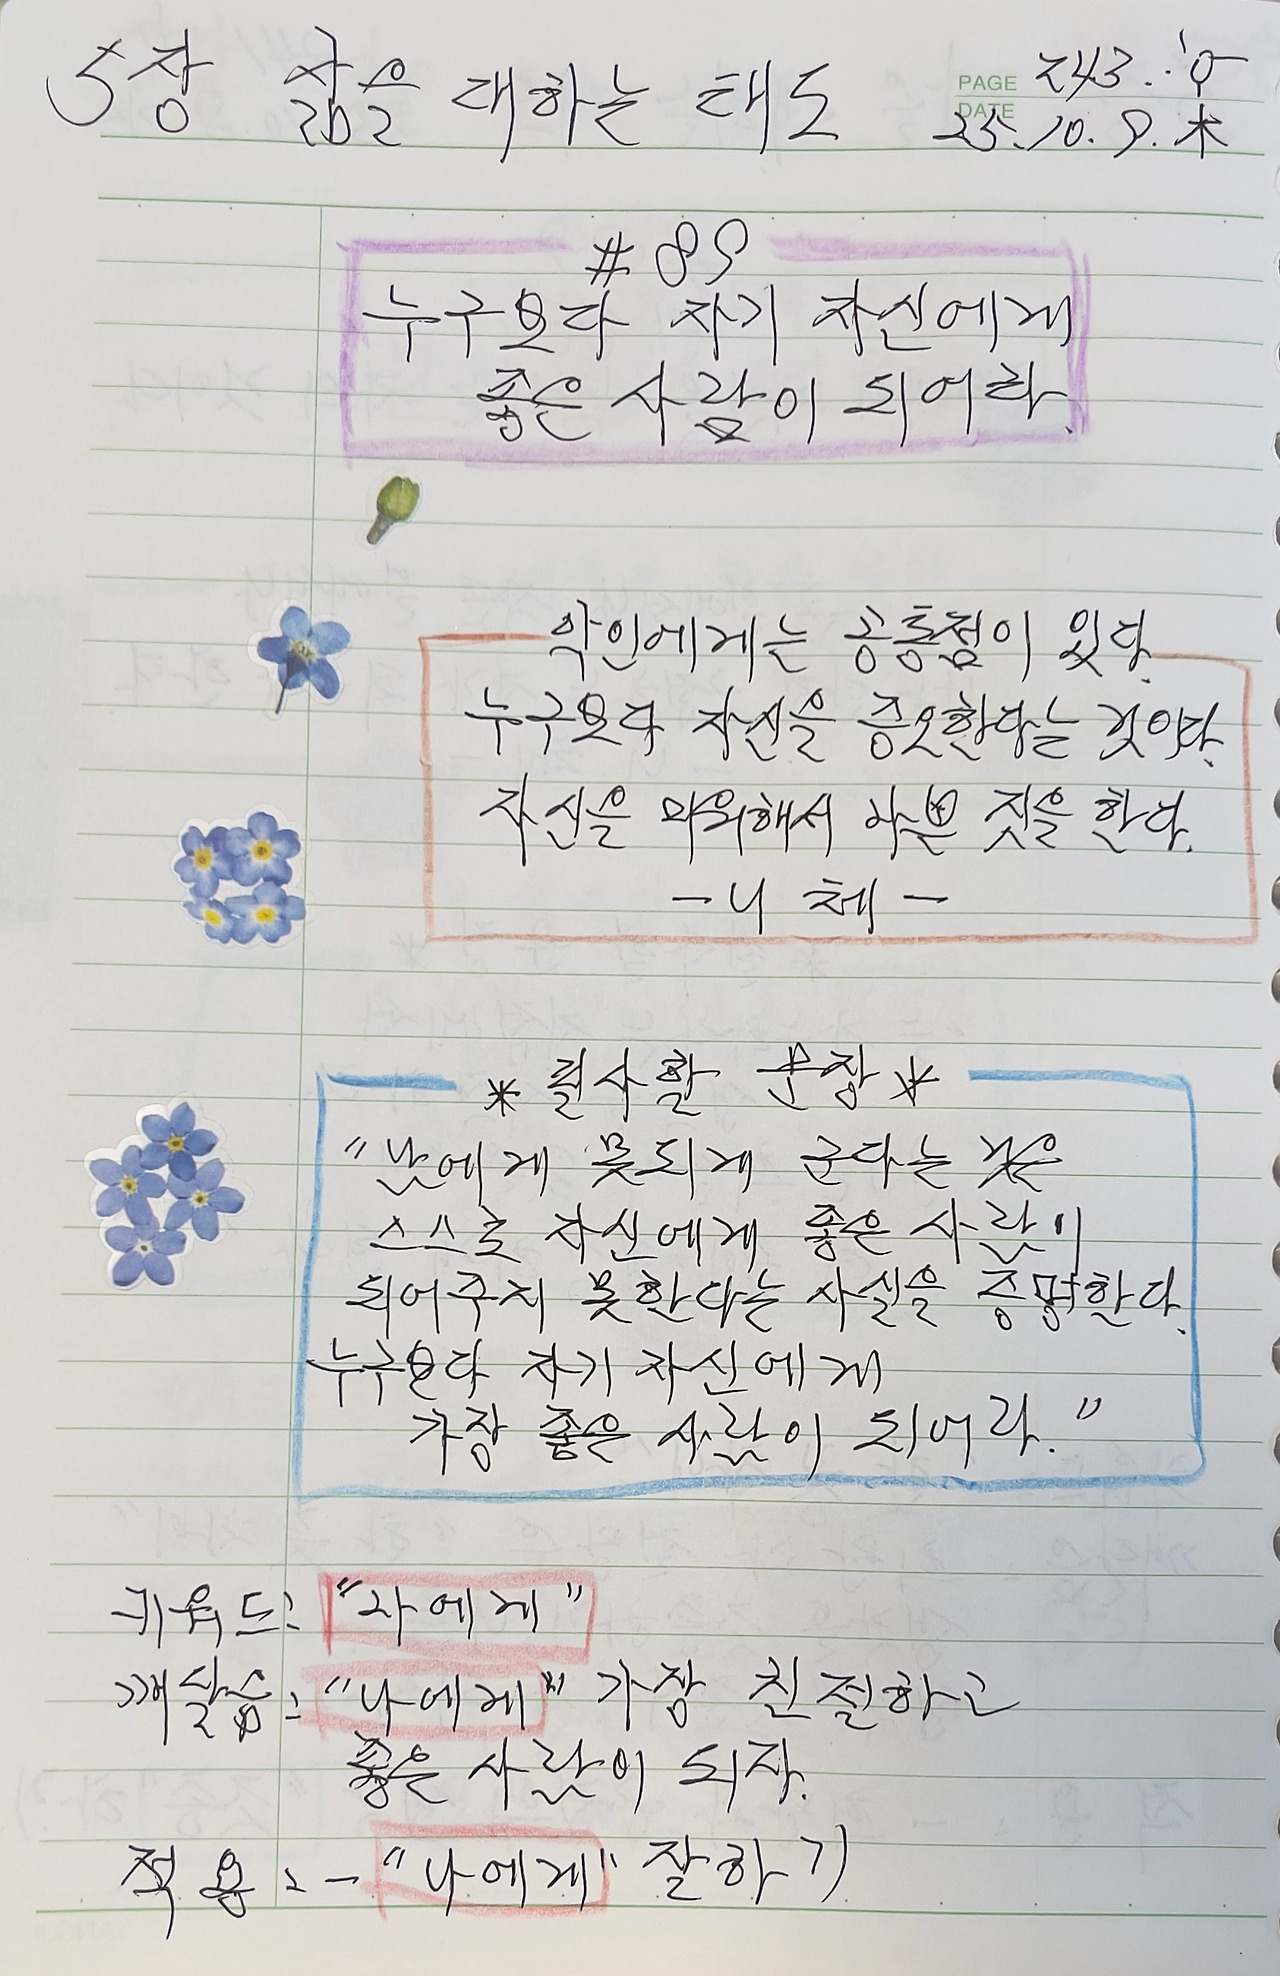 5장 삶을 대하는 태도
PAGE 243.
DATE 25.10.9.木
# 89
누구보다 자기 자신에게
좋은 사람이 되어라.
악인에게는 공통점이 있다.
누구보다 자신을 증오한다는 것이다.
자신을 미워해서 나쁜 짓을 한다.
- 니체 -
* 필사할 문장 *
"남에게 못되게 군다는 것은
스스로 자신에게 좋은 사람이
되어주지 못한다는 사실을 증명한다.
누구보다 자기 자신에게
가장 좋은 사람이 되어라."
키워드: "나에게"
깨달음: "나에게" 가장 친절하고
좋은 사람이 되자.
적용: - "나에게" 잘하기